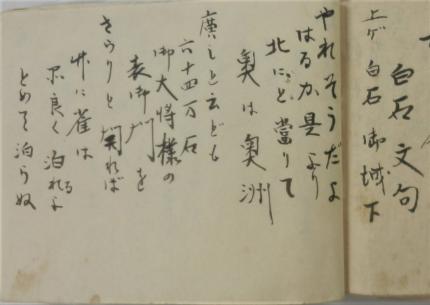 白石文句
上ゲ 白石御城下
やれそうだよ
はるか具より
北にと當りて
奥は奥洲
廣しと云ども
六十四万石
御大将様の
表御門を
さらりと開れば
竹に雀は
品良く泊れよ
とめて泊ら奴